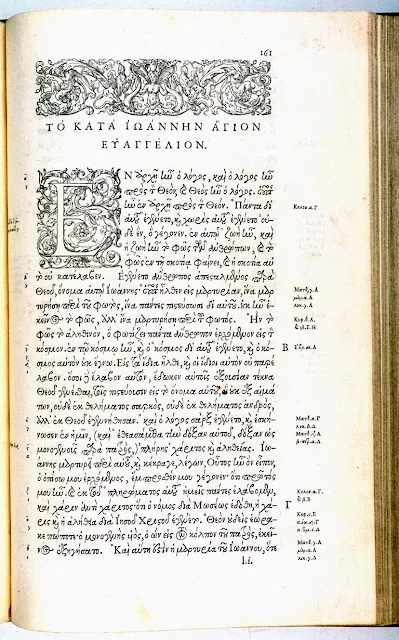 161
ΤΟ ΚΑΤΑ ΙΩΑΝΝΗΝ ΑΓΙΟΝ
ΕΥΑΓΓΕΛΙΟΝ.
ΕΝ ἀρχῇ ἦν ὁ λόγος, καὶ ὁ λόγος ἦν
πρὸς τὸν Θεὸν, καὶ Θεὸς ἦν ὁ λόγος. οὗτος
ἦν ἐν ἀρχῇ πρὸς τὸν Θεόν. Πάντα δι'
αὐτοῦ ἐγένετο, καὶ χωρὶς αὐτοῦ ἐγένετο οὐ-
δὲ ἓν, ὃ γέγονεν. ἐν αὐτῷ ζωὴ ἦν, καὶ
ἡ ζωὴ ἦν τὸ φῶς τῶν ἀνθρώπων, καὶ τὸ
φῶς ἐν τῇ σκοτίᾳ φαίνει, καὶ ἡ σκοτία αὐ
τὸ οὐ κατέλαβεν. Ἐγένετο ἄνθρωπος ἀπεσταλμένος παρὰ
Θεοῦ, ὄνομα αὐτῷ Ἰωάννης· οὗτος ἦλθεν εἰς μαρτυρίαν, ἵνα μαρ-
τυρήσῃ περὶ τοῦ φωτὸς, ἵνα πάντες πιστεύσωσι δι' αὐτοῦ. οὐκ ἦν ἐ-
κεῖνος τὸ φῶς, ἀλλ' ἵνα μαρτυρήσῃ περὶ τοῦ φωτός. Ἦν τὸ
φῶς τὸ ἀληθινὸν, ὃ φωτίζει πάντα ἄνθρωπον ἐρχόμενον εἰς τὸν
κόσμον. ἐν τῷ κόσμῳ ἦν, καὶ ὁ κόσμος δι' αὐτοῦ ἐγένετο, καὶ ὁ κό-
σμος αὐτὸν οὐκ ἔγνω. Εἰς τὰ ἴδια ἦλθε, καὶ οἱ ἴδιοι αὐτὸν οὐ παρέ
λαβον. ὅσοι δὲ ἔλαβον αὐτὸν, ἔδωκεν αὐτοῖς ἐξουσίαν τέκνα
Θεοῦ γενέσθαι, τοῖς πιστεύουσιν εἰς τὸ ὄνομα αὐτοῦ, οἳ οὐκ ἐξ αἱμά
των, οὐδὲ ἐκ θελήματος σαρκὸς, οὐδὲ ἐκ θελήματος ἀνδρὸς,
ἀλλ' ἐκ Θεοῦ ἐγεννήθησαν. καὶ ὁ λόγος σὰρξ ἐγένετο, καὶ ἐσκή-
νωσεν ἐν ἡμῖν, (καὶ ἐθεασάμεθα τὴν δόξαν αὐτοῦ, δόξαν ὡς
μονογενοῦς παρὰ πατρὸς,) πλήρης χάριτος καὶ ἀληθείας. Ἰωάν-
νης μαρτυρεῖ περὶ αὐτοῦ, καὶ κέκραγε, λέγων, Οὗτος ἦν ὃν εἶπον,
ὁ ὀπίσω μου ἐρχόμενος, ἔμπροσθέν μου γέγονεν· ὅτι πρῶτός
μου ἦν. καὶ ἐκ τοῦ πληρώματος αὐτοῦ ἡμεῖς πάντες ἐλάβομεν,
καὶ χάριν ἀντὶ χάριτος· ὅτι ὁ νόμος διὰ Μωσέως ἐδόθη, ἡ χά-
ρις καὶ ἡ ἀλήθεια διὰ Ἰησοῦ Χριστοῦ ἐγένετο. Θεὸν οὐδεὶς ἑώρα-
κε πώποτε· ὁ μονογενὴς υἱὸς, ὁ ὢν εἰς τὸν κόλπον τοῦ πατρὸς, ἐκεῖ-
νος ἐξηγήσατο. Καὶ αὕτη ἐστὶν ἡ μαρτυρία τοῦ Ἰωάννου, ὅτε
l.i.
Β
Γ